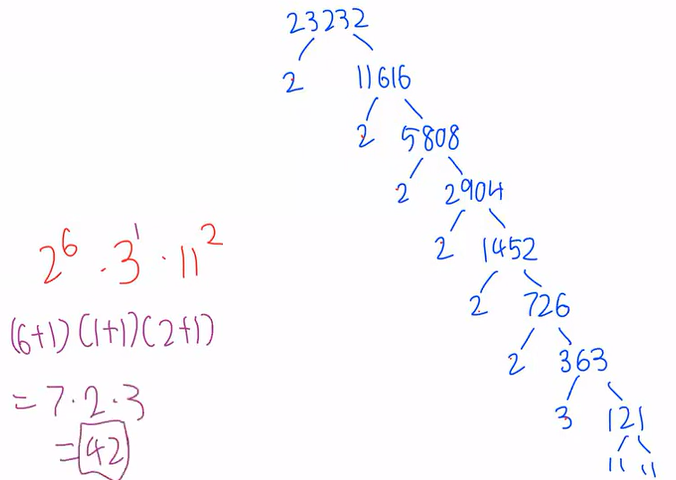 23232
2 11616
2 5808
2 2904
2 1452
2 726
2 363
3 121
11 11
2⁶ · 3¹ · 11²
(6+1)(1+1)(2+1)
= 7·2·3
= 42